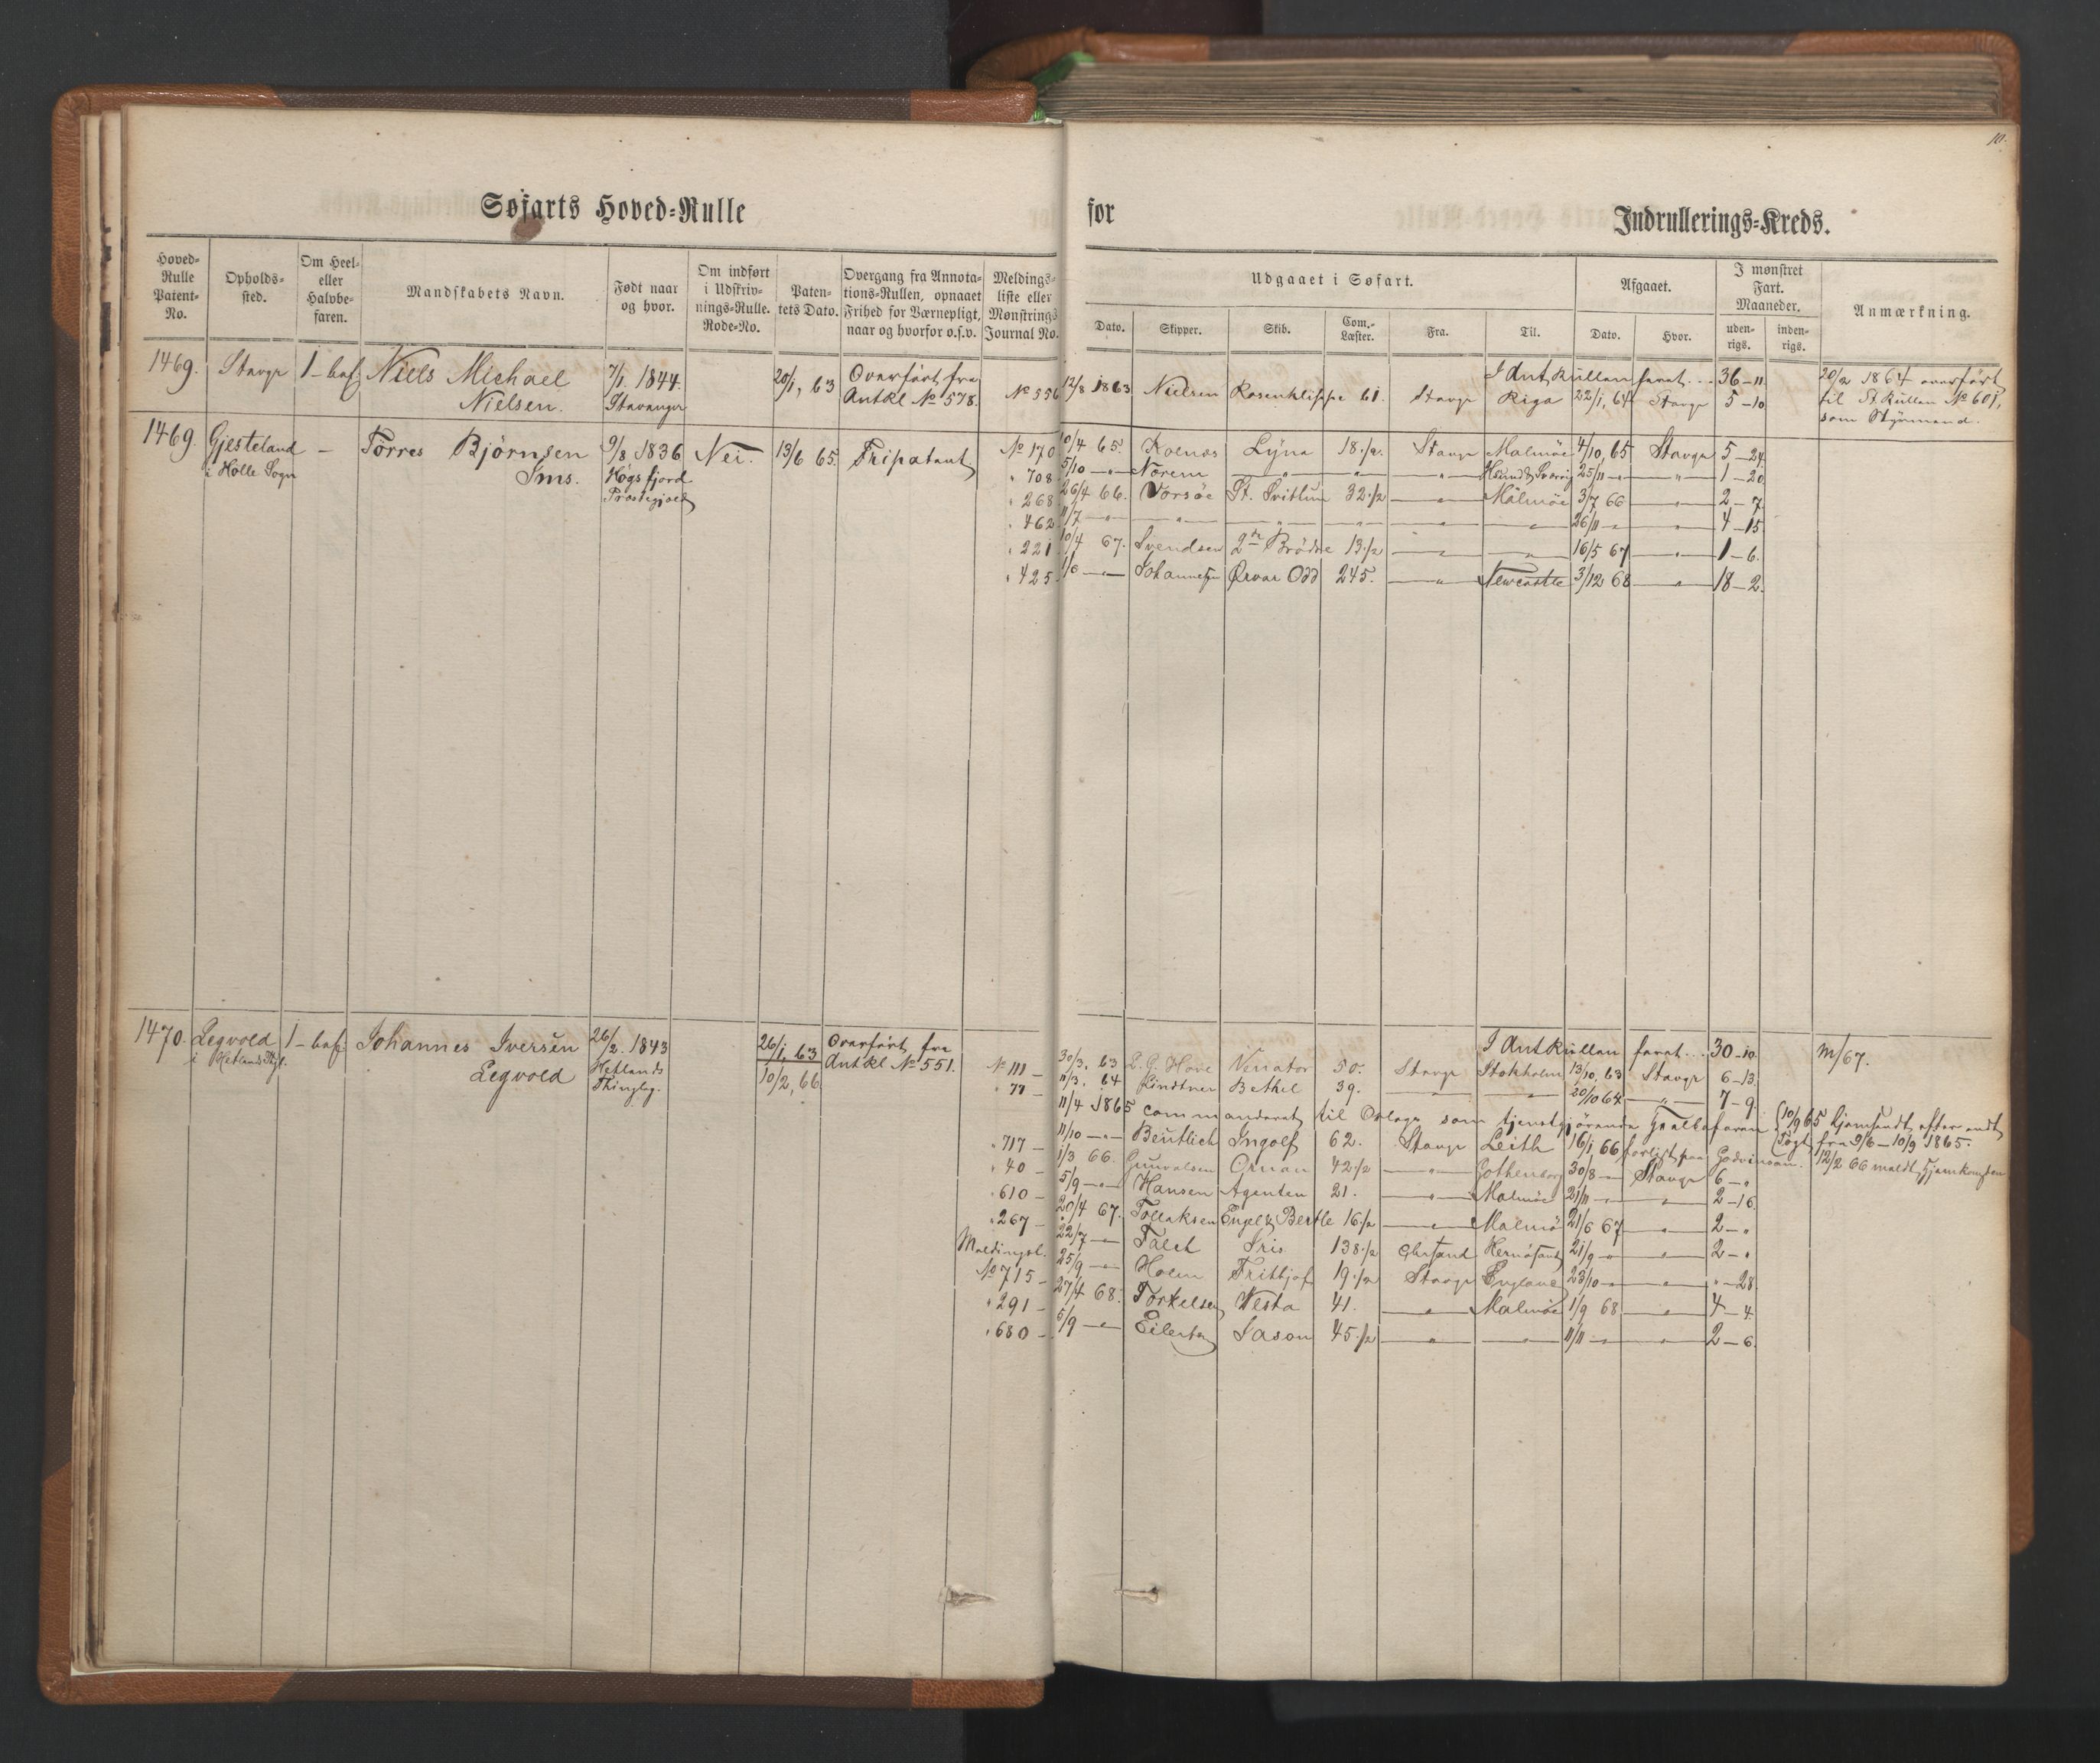 10.
Søfarts Hoved-Rulle for Indrullerings-Kreds.
Hoved-Rulle Patent-No. Opholds-sted. Om Heel- eller Halvbe-faren. Mandskabets Navn. Født naar og hvor. Om indført i Udskriv-nings-Rulle. Rode-No. Paten-tets Dato. Overgang fra Annota-tions-Rullen, opnaaet Frihed for Værnepligt, naar og hvorfor o.s.v. Meldings-liste eller Mønstrings Journal No.
Udgaaet i Søfart. Afgaaet. I mønstret Fart. Maaneder. Anmærkning.
Dato. Skipper. Skib. Com.-Læster. Fra. Til. Dato. Hvor. uden-rigs. inden-rigs.
1469. Stavgr 1-baf Niels Michael 7/1 1844. 20/1, 63 Overført fra
Nielsen. Stavanger Antkl No 578. No 556 12/8 1863 Nielsen Rosenklippe 61. Stavgr Riga 22/1, 64 Stavgr 5-10
I AntRullen faret... 36-11
20/2 1864 overført
til St. Rullen No 601,
som Styrmand.
1469. Gjesteland - Törres Björnsen 9/8 1836 Nei. 13/6 65. Fripatent No 170 10/4 65. Kolnes Lyna 18 1/2. Stavgr Malmöe 4/10, 65 Stavgr 5-24.
i Holle Sogn Ims. Högsfjord " 708 5/10 -"- Norem -"- " 25/11 -"- " 1-20
Præstegjæld " 268 26/4 66. Vorsöe St. Svithun 32 1/2 -"- Malmöe 3/7 66 -"- 2-7.
" 462 11/7 -"- -"- -"- -"- -"- -"- 26/11 -"- " 4-15
" 221 10/4 67. Svendsen 2de Brödre 13 1/2 -"- -"- 16/5 67 -"- 1-6.
" 425 1/6 -"- Johannesen Ørvar Odd 245. -"- Newcastle 3/12 68 -"- 18-2.
1470. Legvold 1-baf Johannes Iversen 26/2. 1843 26/1, 63 Overført fra
i Hetlands Thgl. Legvold Hetlands 10/2, 66 Antkl No 551.
Thinglag.
I AntRullen faret... 30-10. M/67.
No 111 - 30/3, 63 L. G. Hove Venator 50. Stavgr Stokholm 13/10, 63 Stavgr 6-13.
" 77 11/3. 64 Lindtner Bethel 39. -"- -"- 20/10 64 -"- 7-9.
11/4 1865 commanderet til Orlogs som tjenstgjørende Heelbefaren (10/9 65 hjemsendt efter endt
Togt fra 9/6-10/9 1865.
" 717 - 11/10 -"- Beutlich Ingolf 62. Stavgr Leith 16/1, 66 forlist paa 12/2 66 meldt hjemkomsten
" 40 - 1/3 66. Gunvalsen Ornan 42 1/2 -"- Gothenborg 30/8 -"- Stavgr 6-"
" 610 - 5/9 -"- Hansen Agenten 21. -"- Malmöe 21/11 -"- -"- 2-16.
" 267 - 20/4 67. Tollaksen 16 1/2 -"- Malmö 21/6 67 -"- 2-"
Meldingsl. 22/7 -"- Falch Iris 138 1/2 Chrsand Hernösand 21/9 -"- -"- 2-"
No 715 - 25/9 -"- Holm Frithjof 19 1/2 Stavgr England 23/10 -"- -"- "-28
" 291 - 27/4 68. Torkelsen Vesta 41. -"- Malmöe 1/9 68 -"- 4-4
" 680 - 6/9 -"- Eilertsen Jason 45 1/2 -"- -"- 11/11 -"- -"- 2-6.